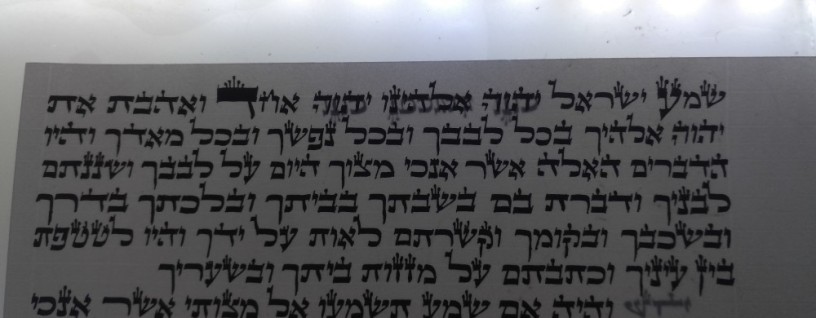 שמע ישראל יהוה אלהינו יהוה אחד ואהבת את
יהוה אלהיך בכל לבבך ובכל נפשך ובכל מאדך והיו
הדברים האלה אשר אנכי מצוך היום על לבבך ושננתם
לבניך ודברת בם בשבתך בביתך ובלכתך בדרך
ובשכבך ובקומך וקשרתם לאות על ידך והיו לטטפת
בין עיניך וכתבתם על מזזות ביתך ובשעריך
והיה אם שמע תשמעו אל מצותי אשר אנכי